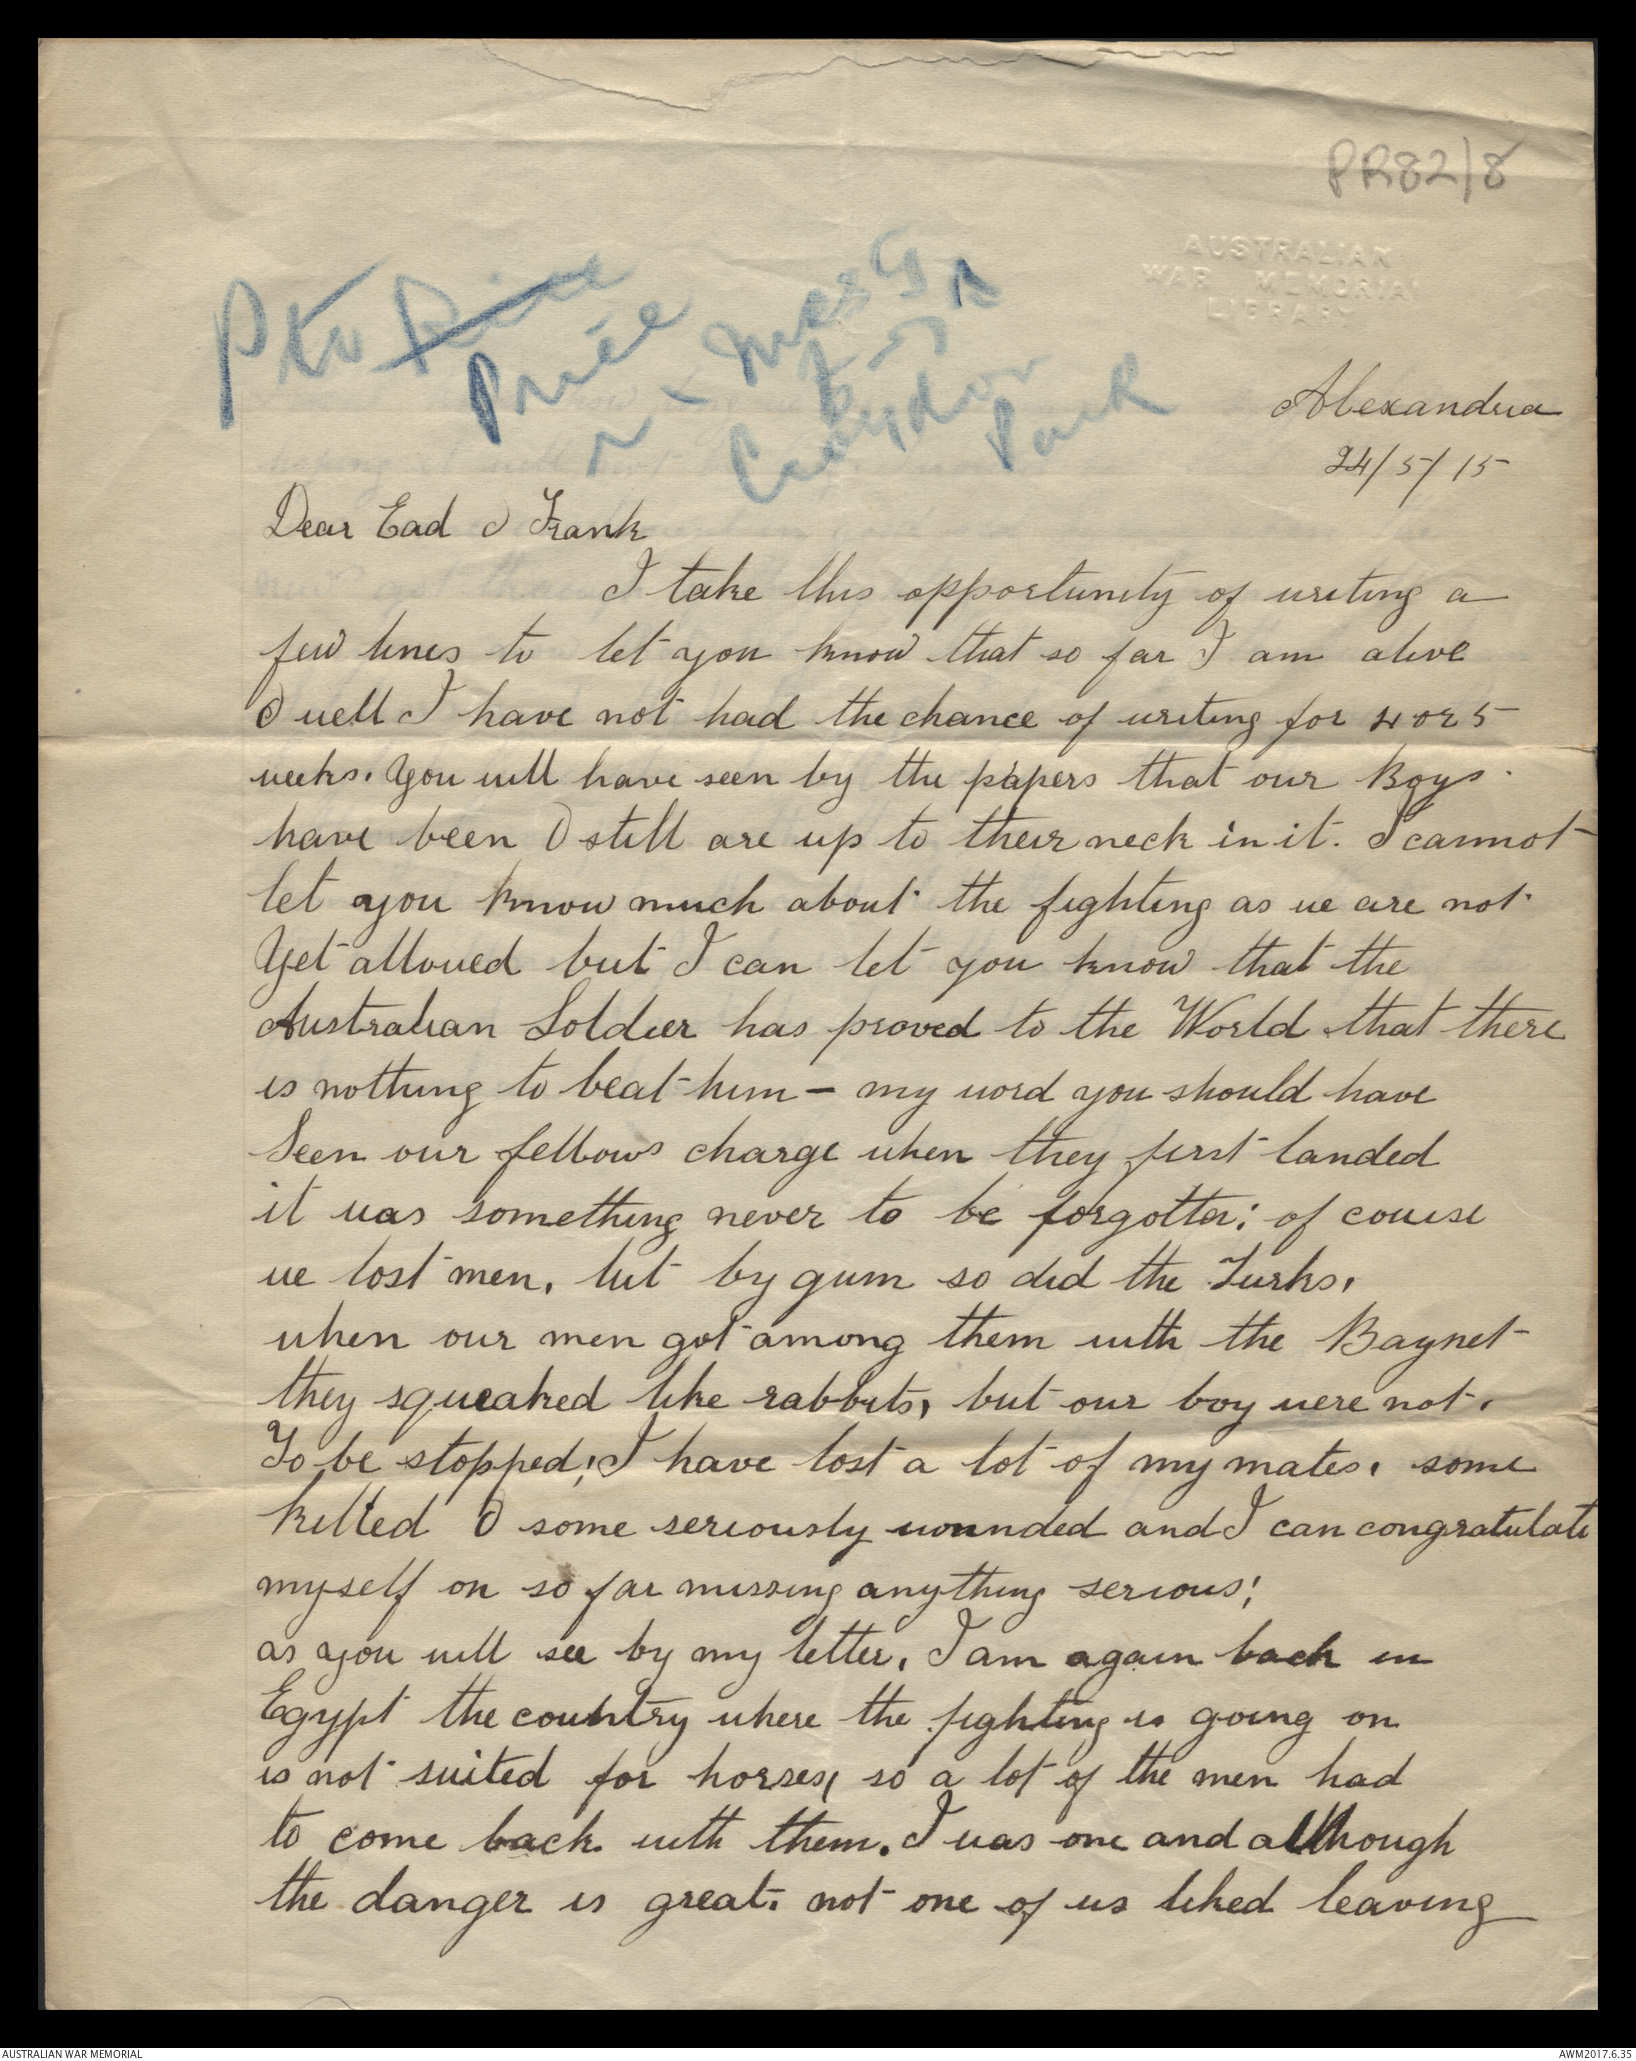 PR82/8
AUSTRALIAN
WAR MEMORIAL
LIBRARY
Pte Price
Price
Croydon
Park
Alexandria
24/5/15
Dear Ead & Frank
I take this opportunity of writing a
few lines to let you know that so far I am alive
& well I have not had the chance of writing for 4 or 5
weeks. You will have seen by the papers that our Boys
have been & still are up to their neck in it. I cannot
let you know much about the fighting as we are not
Yet allowed but I can let you know that the
Australian Soldier has proved to the World that there
is nothing to beat him - my word you should have
Seen our fellows charge when they first landed
it was something never to be forgotten; of course
we lost men, but by gum so did the Turks,
when our men got among them with the Baynet
they squeaked like rabbits, but our boy were not.
To be stopped; I have lost a lot of my mates, some
killed & some seriously wounded and I can congratulate
myself on so far missing anything serious;
as you will see by my letter, I am again back in
Egypt the country where the fighting is going on
is not suited for horses, so a lot of the men had
to come back with them. I was one and although
the danger is great. not one of us liked leaving
AUSTRALIAN WAR MEMORIAL
AWM2017.6.35